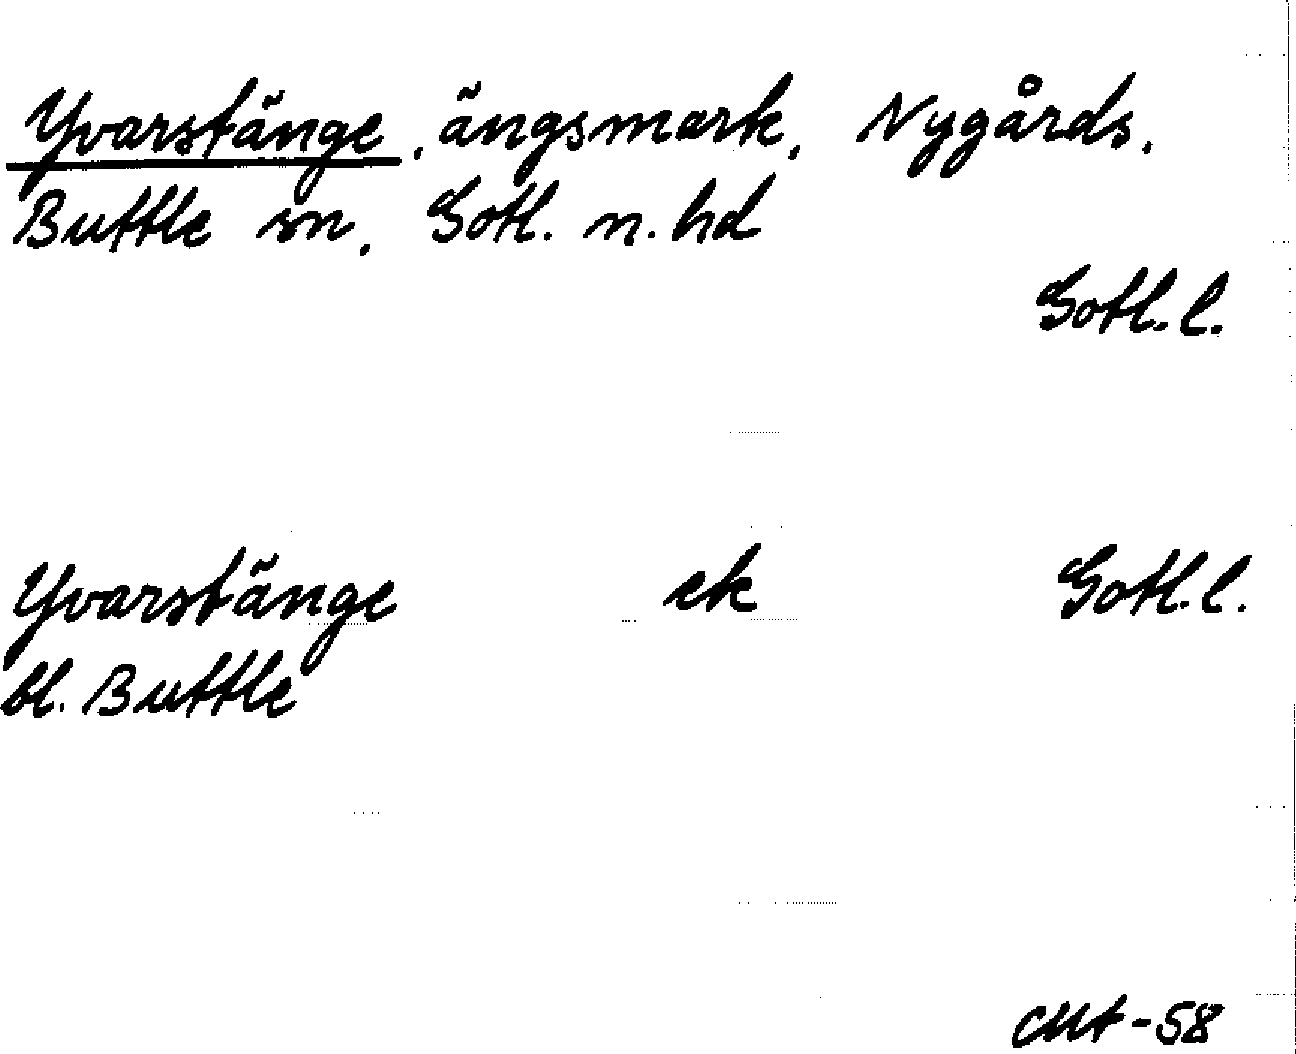 Yvarstänge, ängsmark, Nygårds,
Buttle sn, Gotl. n. hd
Gotl. l.
Yvarstänge ek Gotl. l.
bl. Buttle
CMt-58